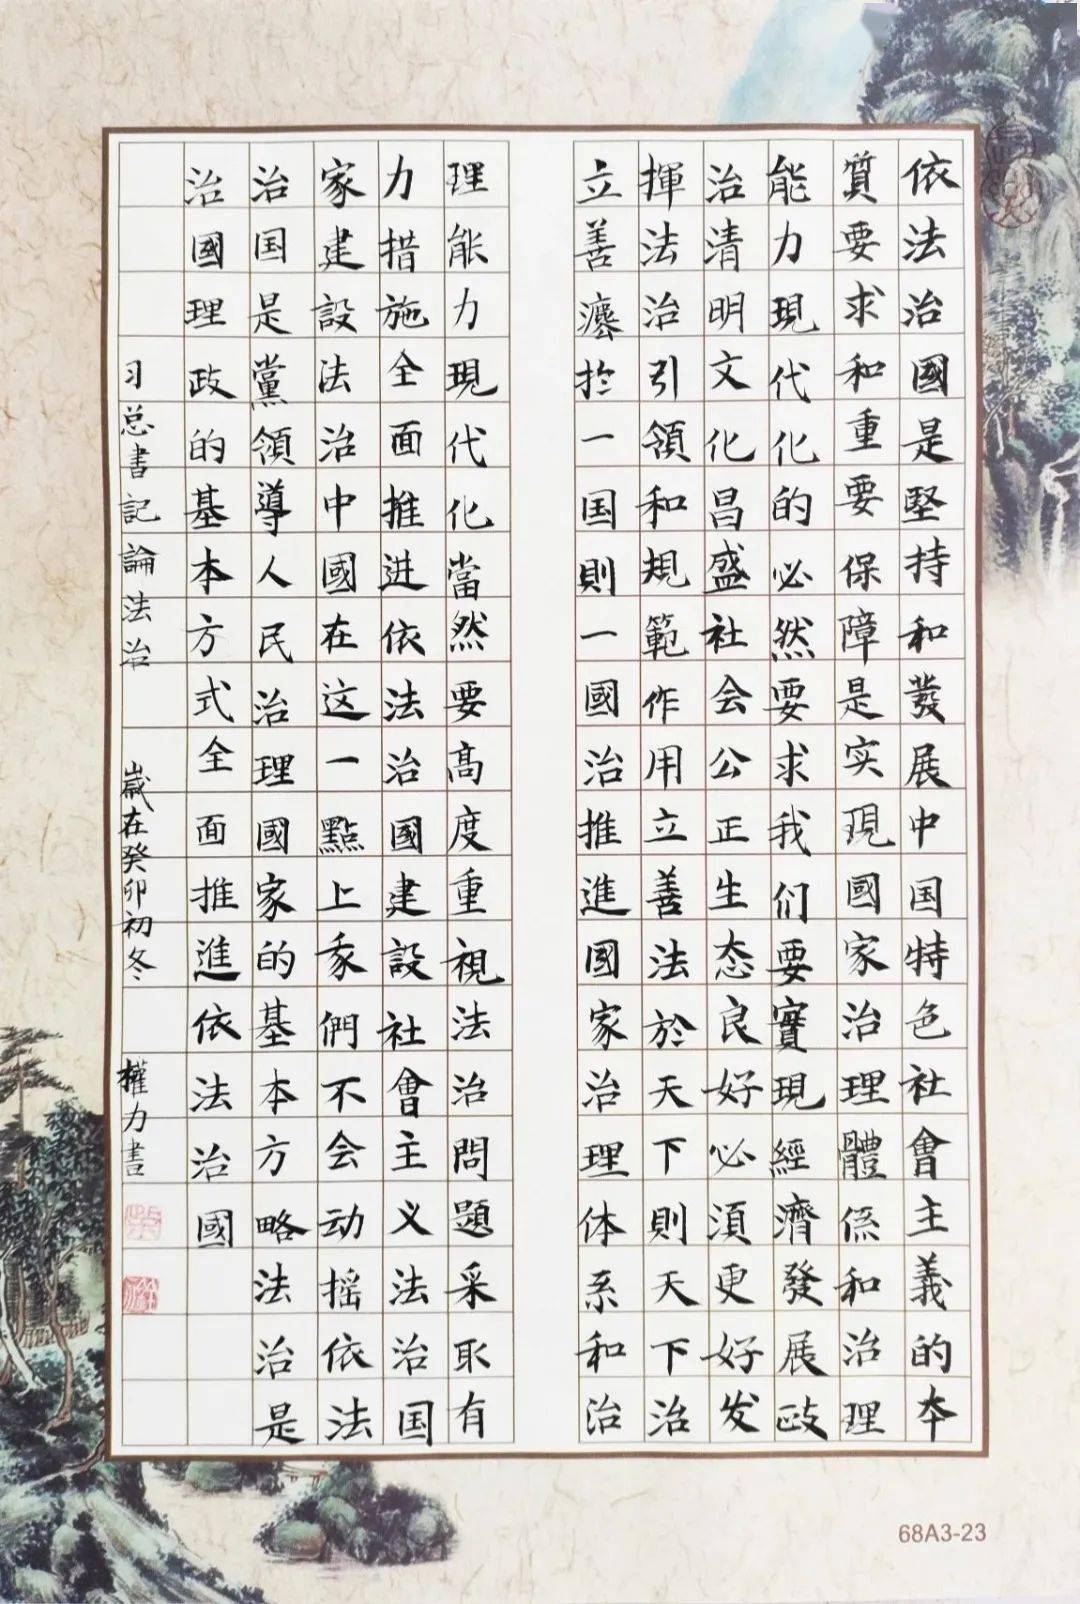 依法治國是堅持和發展中国特色社會主義的本
質要求和重要保障是实現國家治理體係和治理
能力現代化的必然要求我们要實現經濟發展政
治清明文化昌盛社会公正生态良好必須更好发
揮法治引領和規範作用立善法於天下則天下治
立善灋於一国則一國治推進國家治理体系和治
理能力現代化當然要高度重視法治問題采取有
力措施全面推进依法治國建設社會主义法治国
家建設法治中國在这一點上我們不会动摇依法
治国是黨領導人民治理國家的基本方略法治是
治國理政的基本方式全面推進依法治國
习总書記論法治 歲在癸卯初冬 權力書
68A3-23